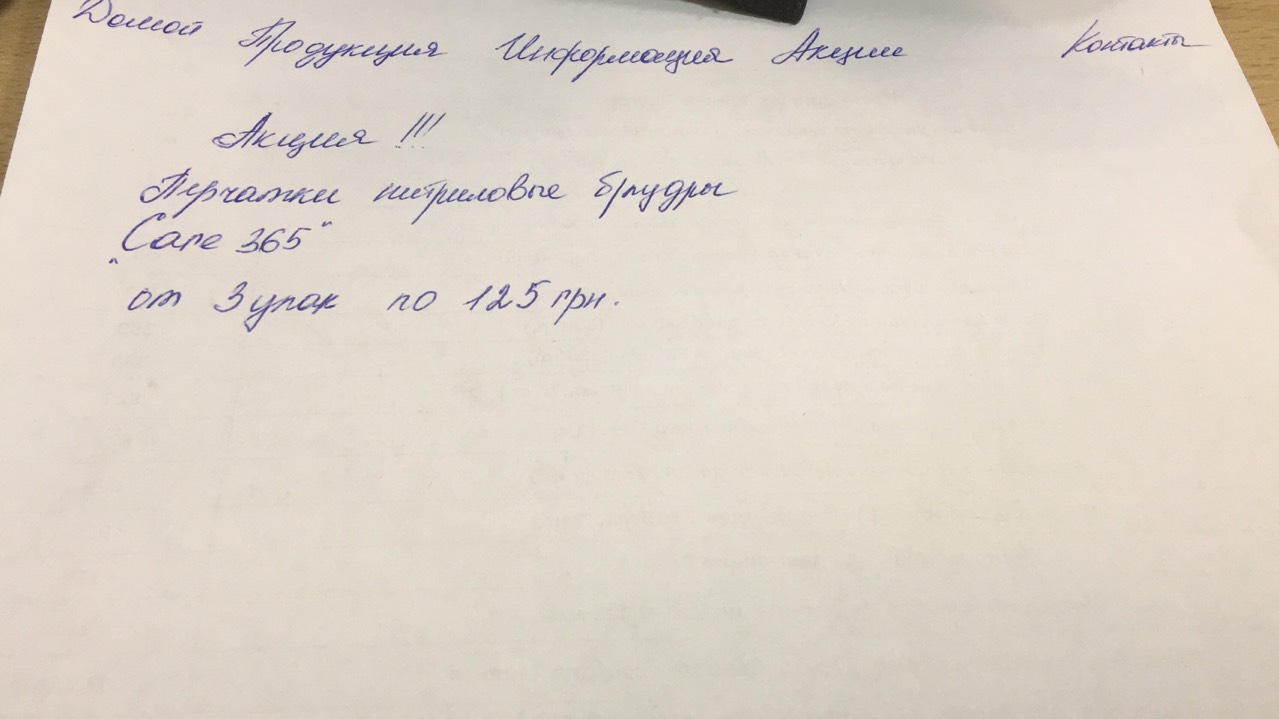 Домой Продукция Информация Акции Контакты
Акция !!!
Перчатки нитриловые б/пудры
"Care 365"
от 3 упак по 125 грн.